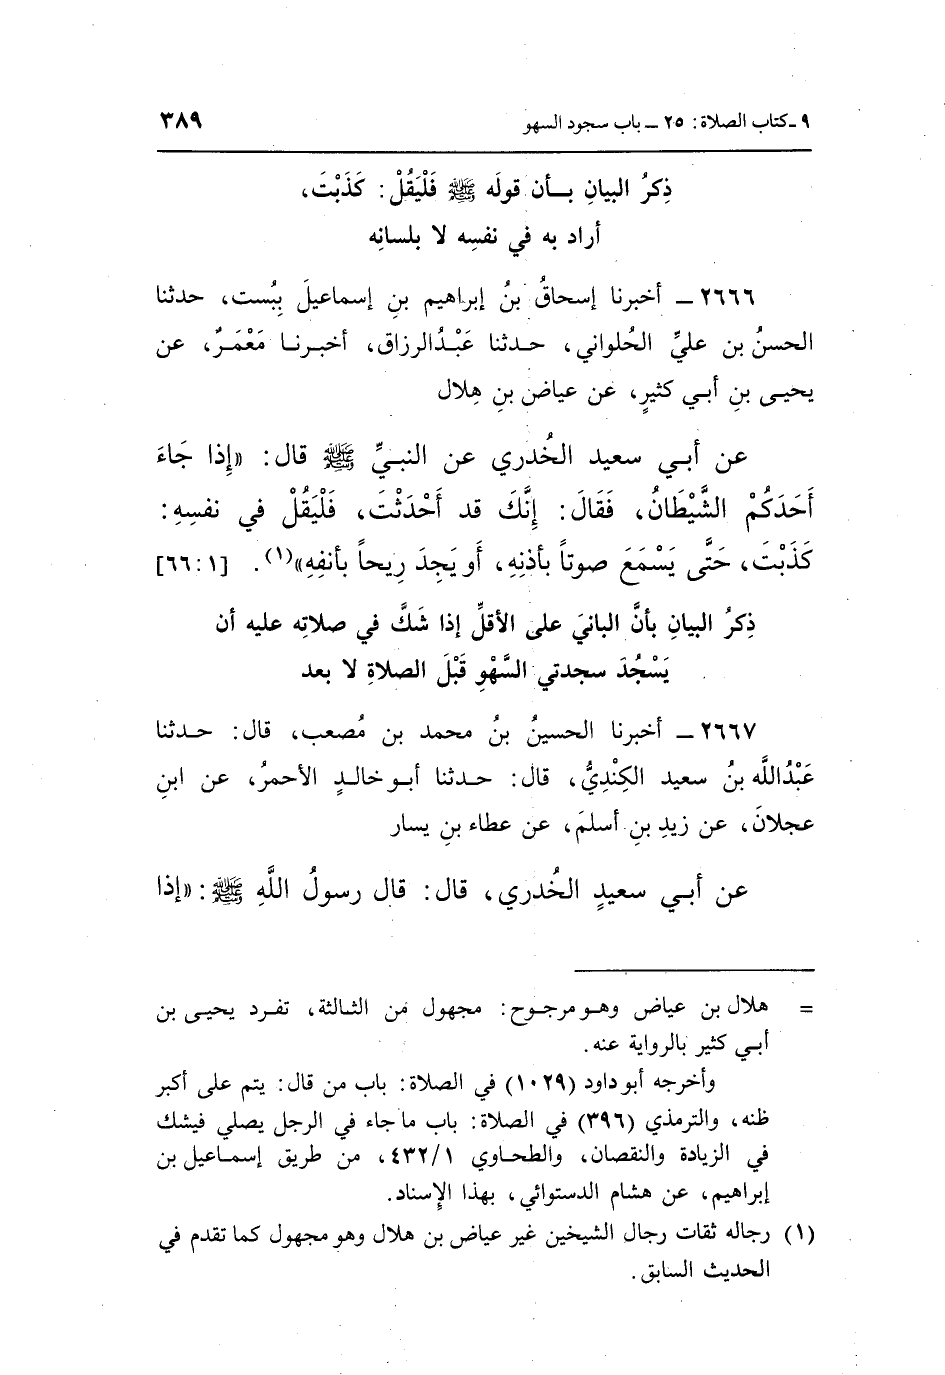 ٩ ـ كتاب الصلاة: ٢٥ ـ باب سجود السهو ٣٨٩
ذِكرُ البيانِ بـأن قولَه ﷺ فَلْيَقُلْ: كَذَبْتَ،
أراد به في نفسِه لا بلسانِه
٢٦٦٦ ـ أخبرنا إسحاقُ بنُ إبراهيم بنِ إسماعيلَ بِبُست، حدثنا
الحسنُ بن عليٍّ الحُلواني، حـدثنا عَبْـدُالرزاق، أخبـرنـا مَعْمَـرٌ، عن
يحيـى بنِ أبـي كثيرٍ، عن عياض بنِ هِلال
عن أبـي سعيد الخُدري عن النبـيِّ ﷺ قال: «إِذا جَاءَ
أَحَدَكُمْ الشَّيْطَانُ، فَقَالَ: إِنَّكَ قد أَحْدَثْتَ، فَلْيَقُلْ في نفسِهِ:
كَذَبْتَ، حَتَّى يَسْمَعَ صوتاً بأذنِهِ، أَو يَجِدَ رِيحاً بأنفِهِ»(١). [٦٦:١]
ذِكرُ البيانِ بأنَّ البانيَ على الأقلِّ إذا شَكَّ في صلاتِه عليه أن
يَسْجُدَ سجدتي السَّهْوِ قَبْلَ الصلاةِ لا بعد
٢٦٦٧ ـ أخبرنا الحسينُ بنُ محمد بن مُصعب، قال: حـدثنا
عَبْدُاللَّه بنُ سعيد الكِنْدِيُّ، قال: حـدثنا أبـو خالـدٍ الأحمرُ، عن ابنِ
عجلانَ، عن زيدِ بنِ أسلمَ، عن عطاء بنِ يسار
عن أبـي سعيدٍ الخُدري، قال: قال رسولُ اللَّهِ ﷺ: «إذا
= هلال بن عياض وهـو مرجـوح: مجهول من الثالثة، تفـرد يحيـى بن
أبـي كثير بالرواية عنه.
وأخرجه أبو داود (١٠٢٩) في الصلاة: باب من قال: يتم على أكبر
ظنه، والترمذي (٣٩٦) في الصلاة: باب ما جاء في الرجل يصلي فيشك
في الزيادة والنقصان، والطحـاوي ٤٣٢/١، من طريق إسمـاعيل بن
إبراهيم، عن هشام الدستوائي، بهذا الإسناد.
(١) رجاله ثقات رجال الشيخين غير عياض بن هلال وهو مجهول كما تقدم في
الحديث السابق.